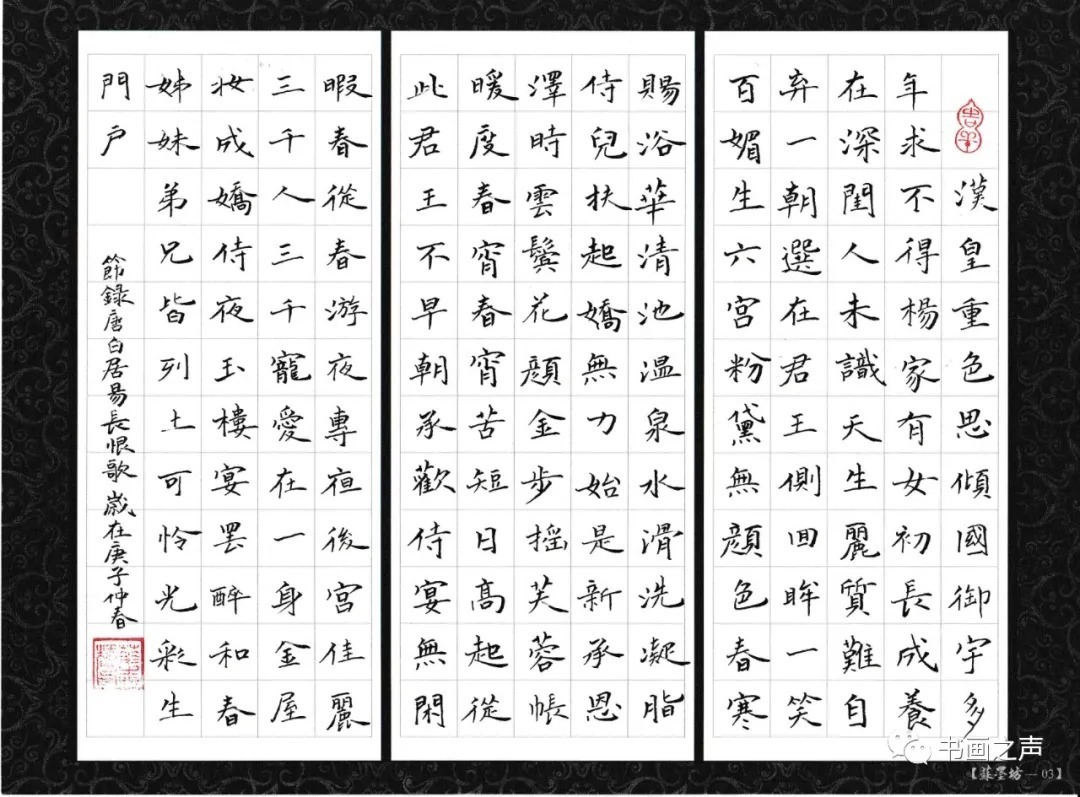 漢皇重色思傾國御宇多
年求不得楊家有女初長成養
在深閨人未識天生麗質難自
弃一朝選在君王側回眸一笑
百媚生六宮粉黛無顏色春寒
賜浴華清池温泉水滑洗凝脂
侍兒扶起嬌無力始是新承恩
澤時雲鬢花顏金步摇芙蓉帳
暖度春宵春宵苦短日高起從
此君王不早朝承歡侍宴無閑
暇春從春游夜專夜後宮佳麗
三千人三千寵愛在一身金屋
妝成嬌侍夜玉樓宴罷醉和春
姊妹弟兄皆列土可怜光彩生
門户
節錄唐白居易長恨歌歲在庚子仲春
书画之声
墨坊—03】